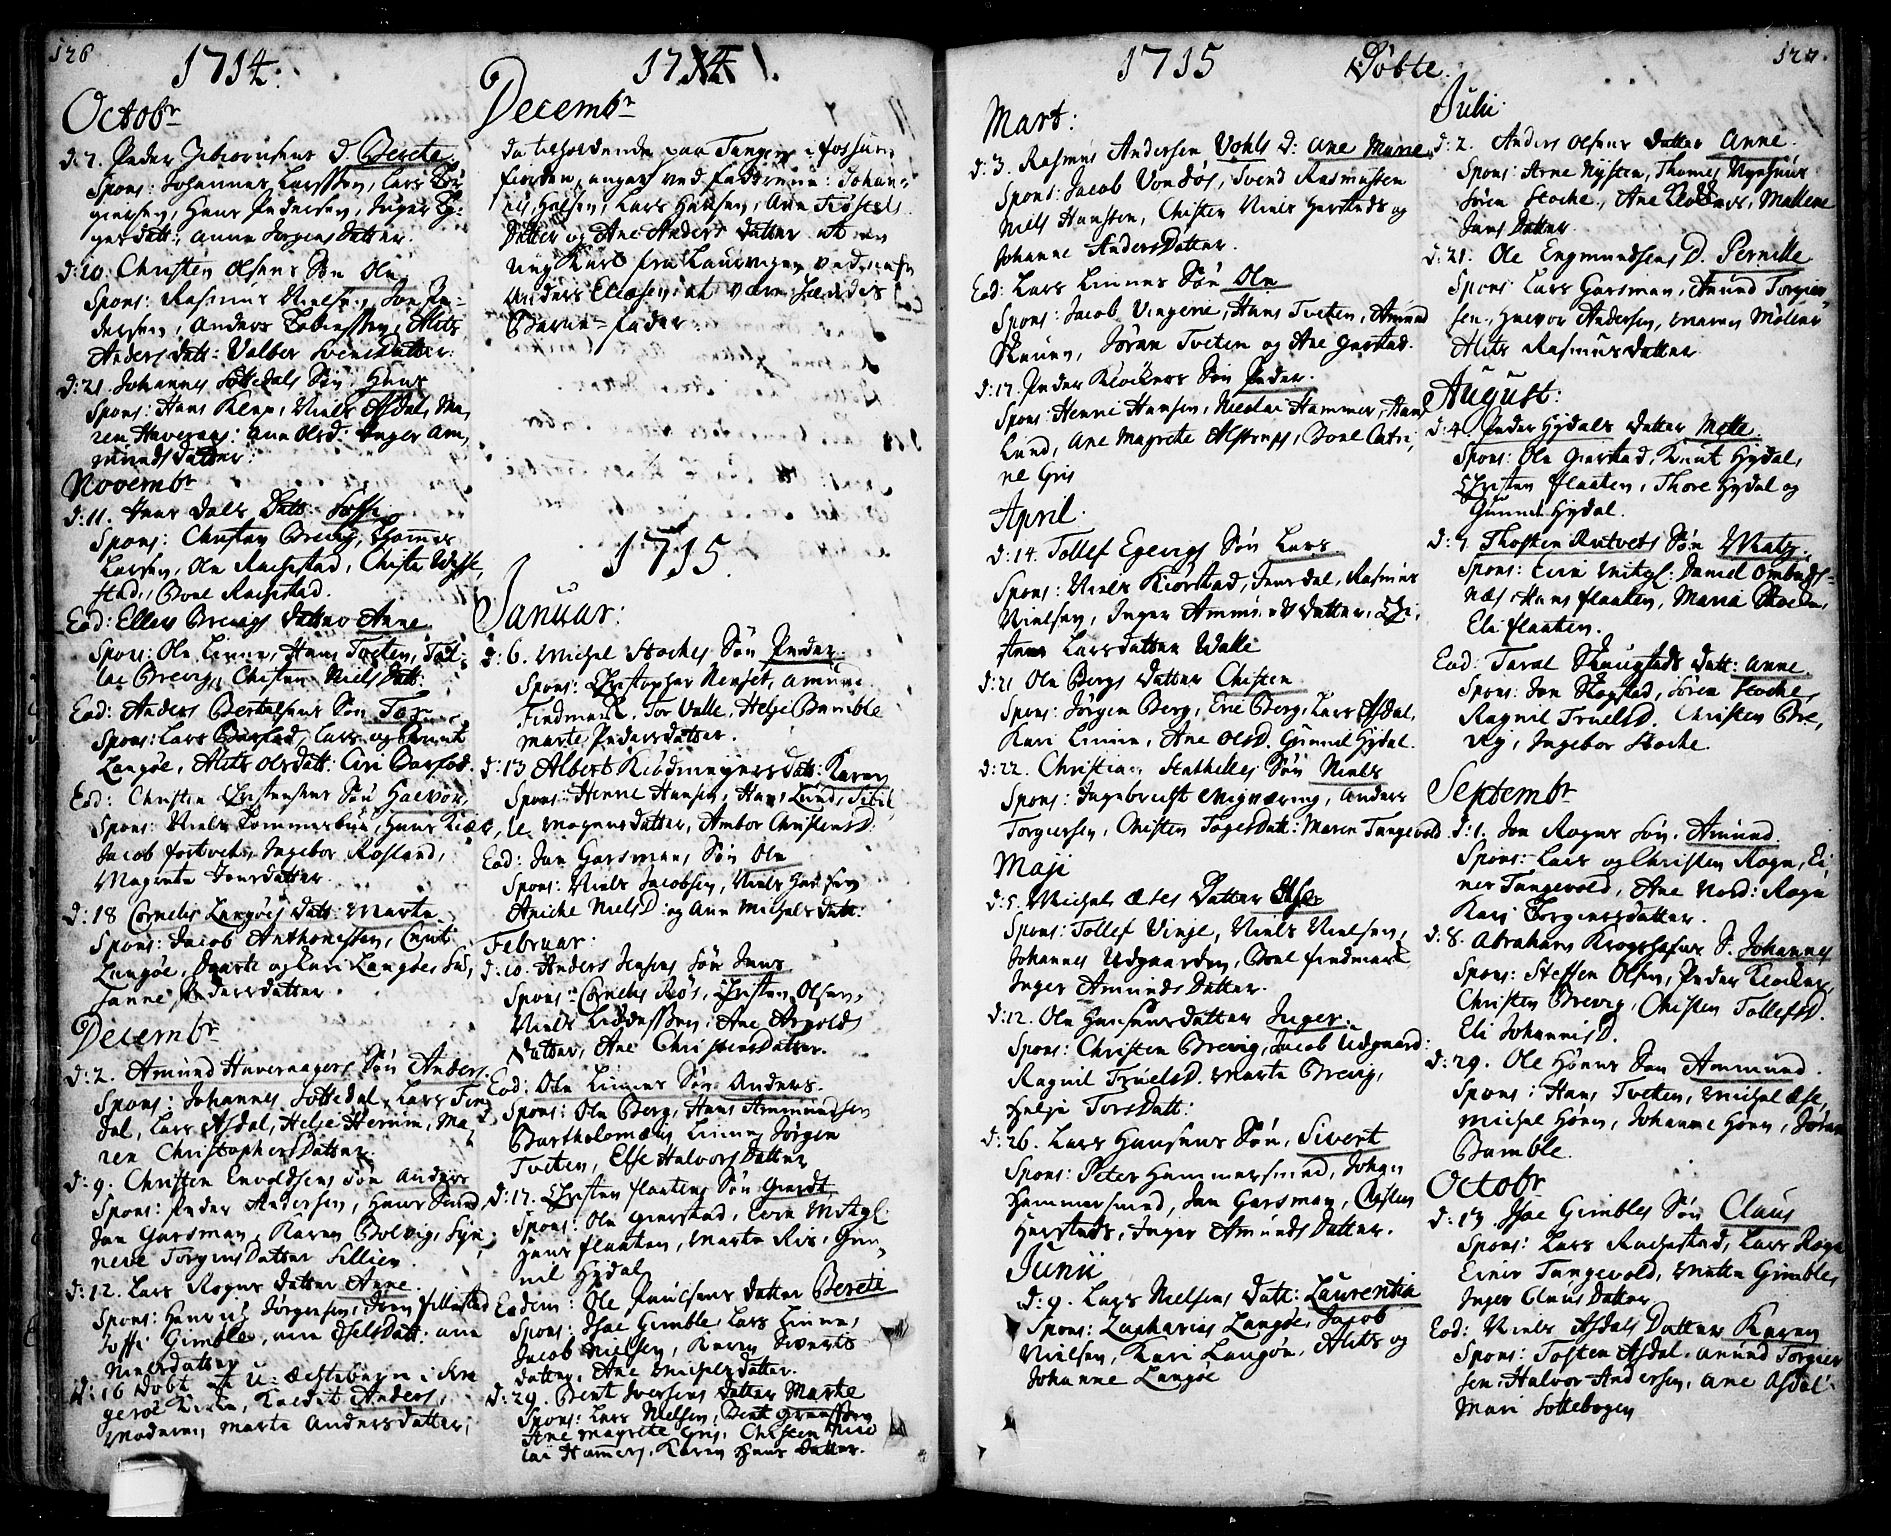 126
1714.
Octobr
d: 7. Peder D. Berete
Spons: Johannes Larssen, Lars Tor
giersen, Hans Pedersen, Inger Tor
gersdatt: Anna Jorgens Datter.
d: 10. Christen Olsens Søn Ole
Spons: Rasmus Nielsen, Jon Pe=
dersen, Anders Tobiessen, Alits
Anders datt: Valber Svens Datter.
d: 21. Johannes Sottedals Søn Hans
Spons: Hans Klep, Niels Asdal, Ma,
ren Haveraag: Ane Olsd: Inger Am,
munds datter.
Novembr
d: 11. Jens Dals Datt: Soffe
Spons: Christen Brevig, Thomas
Larsen, Ole Rachestad, Christen
stad, Boel Rachestad.
Eod: Ellevs Brevigs Datter Anne
Spons: Ole Linne, Hans Tveten,
Brevig, Chisten Niels Datt:
Eod: Anders Bertelsens Søn Tor
Spons: Lars Barstad, Lars og Knut
Langøe, Alits Olsdatt: Siri Barstad.
Eod: Christen Christensens Søn Halvor,
Spons: Niels Hans
Jacob Ingebor Rosland,
Magrete Jensdatter.
d: 18 Cornelis Langøes Datt: Marte
Spons: Jacob Anthonissen, Cnut
Langøe, Marte og Kari Langøe, Su,
sanne Pedersdatter.
Decembr
d: 2. Amund Haveraagers Søn Anders.
Spons: Johannes Sottedal, Lars Fin
dal, Lars Asdal, Helje Ma,
ren Christophers Datter.
d: 9. Christen Envoldsens Søn Anders
Spons: Peder Andersen, Hans
Jan Garsman, Karen Bolvig, Syn,
neve Torgiers Datter Lillien.
d: 12. Lars Rognes Datter Anne.
Spons: Jørgensen,
Soffi Gimble, datt: Ane
Nielsdatter
d: 16 Døbt et U: ægtebarn i
Kirke, Kaldet Anders,
Moderen, Marte Andersdatter,
1714.
Decembr
da tilholdende paa Tangen i Fossum
fiorden, angav ved fadderne: Johan=
nes Hansen, Lars Hansen, Ane
Datter og Ane Anders Datter at en
ung Karl fra Laurvigen ved nafn
Anders Eliesen at være hendes
Barne=fader
1715.
Januar:
d: 6. Michel Stoches Søn Peder.
Spons: Christopher Amund
Findmark, Tor Valle, Helje Bamble
Marte Pedersdatter.
d: 13 Albert Kiødmeyers datt: Karen
Spons: Henric Hansen, Hans Lund, Sibil
le Mogensdatter, Ambor ChristensD:
Eod: Jan Garsmans Søn Ole
Spons: Niels Jacobsen, Niels Hansen
Aniche NielsD: og Ane Michelsdatt:
Februar:
d: 10. Anders Jensens Søn Jens
Spons: Cornelis Røs, Christen Olsen,
Niels Ane Arvolds
Datter, Ane Christensdatter.
Eod: Ole Linnes Søn Anders.
Spons: Ole Berg, Hans Ammundsen
Bartholomæus Linne, Jørgen
Tveten, Else Halvors Datter
d: 17. Christen Flaatens Søn Gerdt
Spons: Ole Gierstad, Even Mitgl:
Hans Flaaten, Marte Ris, Gun,
nil Hydal
Eodem: Ole Pauelsens Datter Berete
Spons: Isac Gimble, Lars Linne,
Jacob Nielsen, Karen Siverts
datter, Ane Michelsdatter.
d: 29. Bent Iversens Datter Marte
Spons: Lars Nielsen, Bent
Ane Magrete Gris, Chisten Nico
lai Hammers, Karen Hans Datter.
1715 Døbte.
127.
Mart:
d: 3. Rasmus Andersen Vohls D: Ane Marie
Spons: Jacob Vondøs, Tvend Rasmussen
Niels Hansten, Chisten Niels Herstads og
Johanne Anders Datter.
Eod: Lars Linnes Søn Ole
Spons: Jacob Vingerie, Hans Tveten, Amund
Skauen, Jøran Tveten og Ane Gierstad.
d: 17. Peder Klockers Søn Peder.
Spons: Henric Hansen, Nicolai Hammer, Hans
Lund, Ane Magrete Alstrup, Boel Catri,
ne Gris
April.
d: 14. Tollef Søn Lars
Spons: Niels Kiørstad, Jens dal, Rasmus
Nielsen, Inger Ammunds Datter, Chi,
sten Larsdatter Valle
d: 21 Ole Bergs Datter Chisten
Spons: Jørgen Berg, Eric Berg, Lars Asdal,
Kari Linne, Ane OlsD. Gunnil Hydal.
d: 22. Christian Stathelles Søn Niels
Spons: Ingebricht Anders
Torgiersen, Chisten TogersDatt: Maren Tangevold
Maji
d: 5. Michel Æses Datter Else
Spons: Tollef Vinje, Niels Nielsen,
Johannes Udgaarden, Boel Findmark
Inger Amunds Datter.
d: 12. Ole Hansens Datter Inger.
Spons: Christen Brevig, Jacob Udgaard:
Ragnil TruelsD. Marte Brevig,
Helje TorsDatt:
d: 26. Lars Hansens Søn, Sivert
Spons: Peter Hammersmed, Johan
Hammersmed, Jan Garsman, Chisten
Herstads, Inger Amunds Datter.
Junii
d: 9. Lars Nielsens Datt: Laurentia
Spons: Zacharias Langøe, Jacob
Nielsen, Kari Langøe, Alits og
Johanne Langøe
Julii:
d: 2. Anders Olsens Datter Anne.
Spons: Arne Nysten, Thomes
Søren Stocke, Ane Mallene
Jens Datter
d: 21. Ole Engmundsens D. Pernille
Spons: Lars Garsman, Amund Torgier=
sen, Halvor Andersen, Maren Møller
Alits Rasmusdatter
August:
d: 4. Peder Hydals Datter Mette
Spons: Ole Gierstad, Knut Hydal,
Christen Flaaten, Thore Hydal og
Gunnil Hydal.
d: 7. Thosten Rutvets Søn Matz.
Spons: Even Mitgl: Daniel Ombuds=
næs, Hans Flaaten, Maria
Eli Flaaten.
Eod: Taral Skougstads Datt: Anne
Spons: Jon Skogstad, Søren Stocke,
Ragnil TruelsD. Christen Bre,
vig, Ingebor Stocke.
Septembr
d: 1. Jon Rognes Søn, Amund.
Spons: Lars og Christen Rogn, Ei,
ner Tangevold, Ane Nord: Rogn
Kari Torgiersdatter.
d: 8. Abraham Krogshafns S. Johannes
Spons: Steffen Olsen, Peder Klocker,
Christen Brevig, Chisten TollefsD.
Eli JohannisD.
d: 29. Ole Hønes Søn Ammund.
Spons: Hans Tveten, Michel Æse,
Michel Høen, Johanne Høen, Jøran
Bamble.
Octobr
d: 13 Isac Gimbles Søn Claus
Spons: Lars Rachestad, Lars Rogn
Einer Tangevold, Mette Gimble,
Inger Claus datter
Eod: Niels Asdals Datter Karen
Spons: Tosten Asdal, Amund Torgier
sen, Halvor Andersen, Ane Asdal
Mari Sottebogen